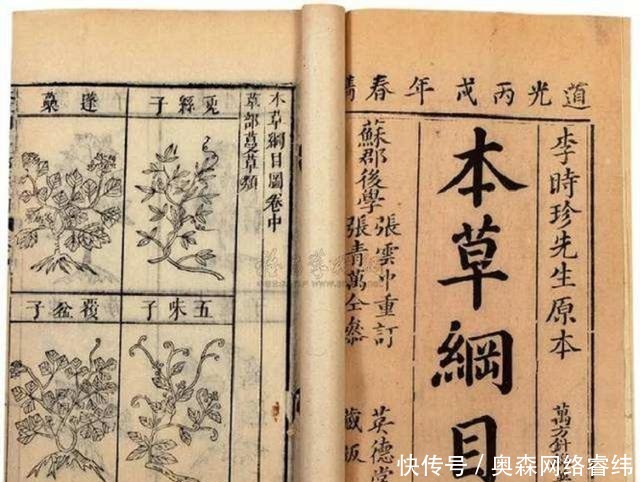 道光丙戌年春
李時珍先生原本
萬方針線
本草綱目
蘇郡後學
張雲中重訂
張青萬仝參
英德堂
藏版
本草綱目圖卷中
草部蔓草類
兔絲子
蓬蘽
五味子
覆盆子
快传号 / 奥森网络睿纬